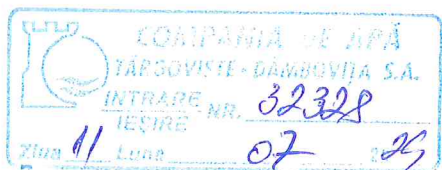 COMPANIA DE APĂ
TÂRGOVIŞTE - DÂMBOVIŢA S.A.
INTRARE
IEŞIRE NR. 32328
Ziua 11 Luna 07 2025